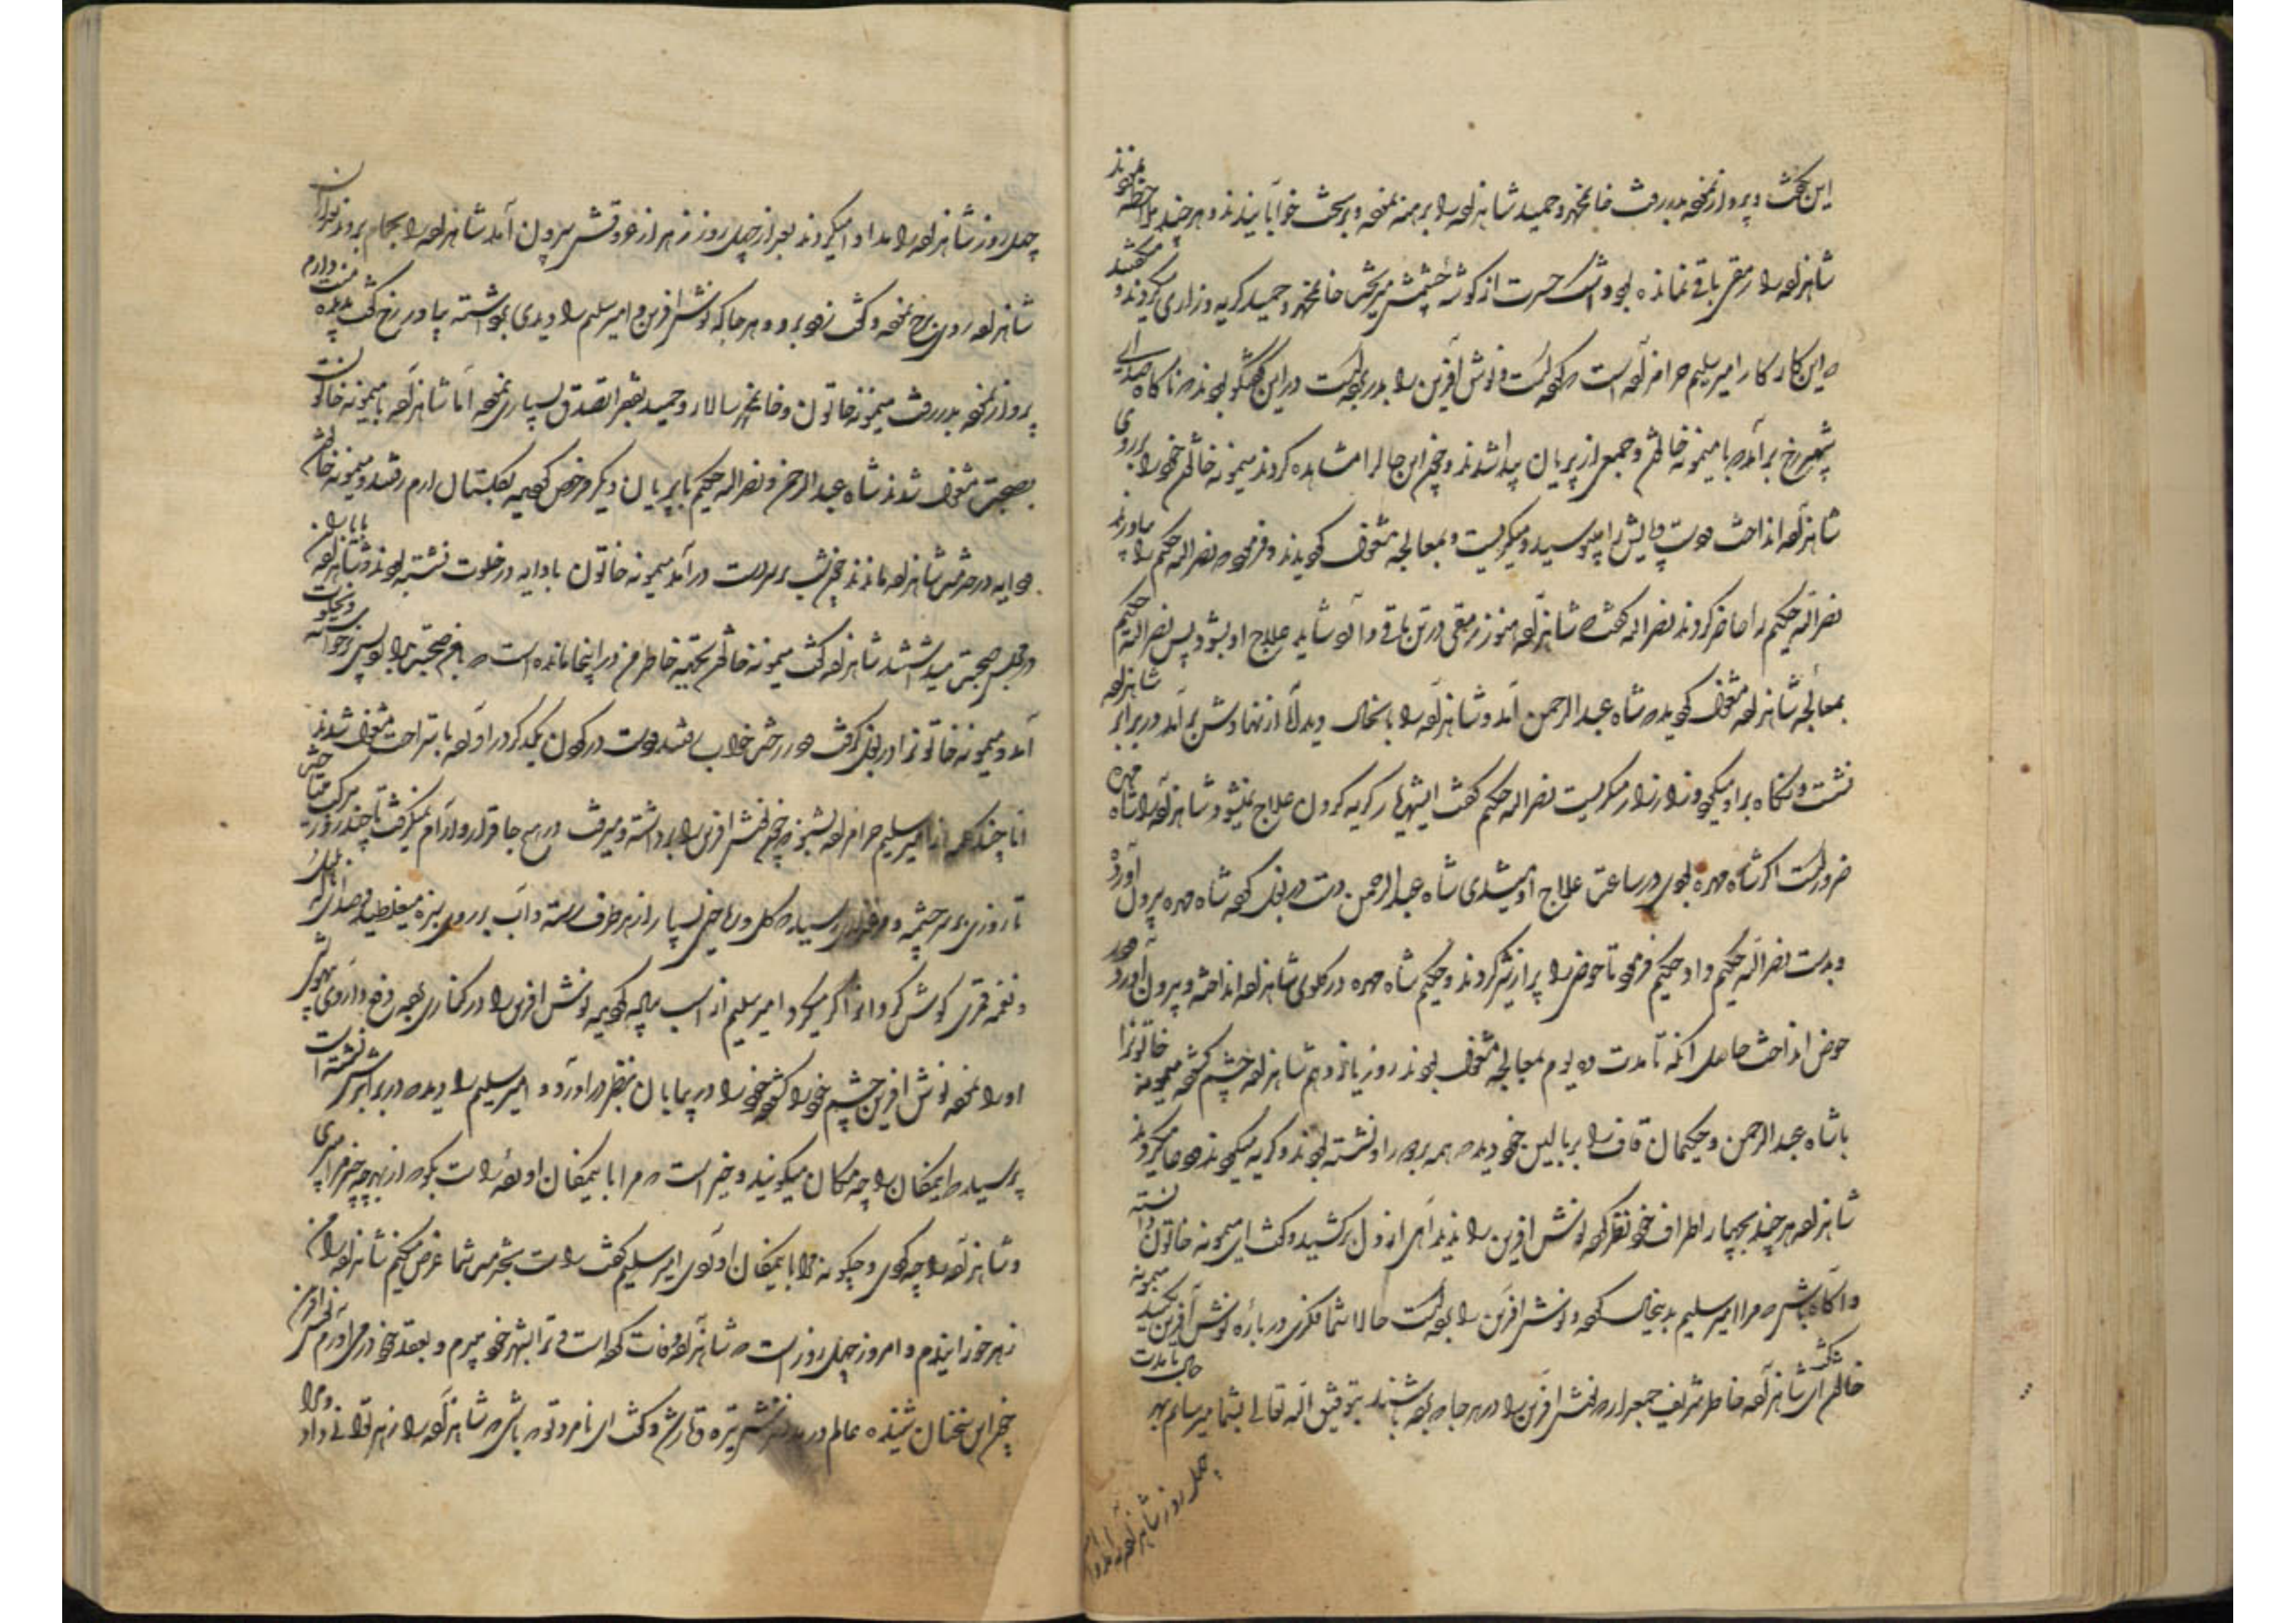 این بگفت و پرواز نموده بدر رفت خانمحمد و حمید شاهزاده را برهنه نموده و بر تخت خوابانیدند و هر چند ملاحظه نمودند
شاهزاده را رمقی باقی نمانده بود و اشک حسرت از کوشه چشمش میریخت خانمحمد و حمید کریه و زاری میکردند و میکفتند
که این کار کار امیر سلیم حرامزاده است که کرده است و نوش آفرین را بدر برده است در این کفتگو بودند که ناکاه صدای
شهپر مرغ برآمد با میمونه خاتون و جمعی از پریان پیدا شدند و چون این حال را مشاهده کردند میمونه خاتون خود را بر روی
شاهزاده انداخت دست و پایش را میبوسید و میکریست و بمعالجه مشغول کردیدند و فرمود که نصراله حکیم را بیاورند
نصراله حکیم را حاضر کردند نصراله کفت شاهزاده هنوز رمقی در تن باقی دارد شاید علاج او بشود پس نصراله حکیم
بمعالجه شاهزاده مشغول کردید که شاه عبدالرحمن آمد و شاهزاده را بانحال دید آه از نهادش برآمد در برابر شاهزاده
نشست و نکاه بر او میکرد و زار زار میکریست نصراله حکیم کفت ایشهریار کریه کردن علاج نمیشود شاهزاده را شاه مهره
ضرور است اکر شاه مهره بودی در ساعت علاج او میشدی شاه عبدالرحمن دست در بغل کرده شاه مهره بیرون آورده
و بدست نصراله حکیم داد حکیم فرمود تا حوض را پر از شیر کردند و حکیم شاه مهره در کلوی شاهزاده انداخته و بیرون آورد و در
حوض انداخت حاصل آنکه تا مدت ده یوم بمعالجه مشغول بودند روز یازدهم شاهزاده چشم کشوده میمونه خاتون را
با شاه عبدالرحمن و حکیمان قاف را بر بالین خود دید که همه بر دور او نشسته بودند و کریه میکردند و دعا میکردند
شاهزاده هر چند بچهار اطراف خود نظر کرد نوش آفرین را ندید آهی از دل برکشید و کفت ای میمونه خاتون دانسته
و آکاه باش که مرا امیر سلیم بدینحال کرده و نوش آفرین را برده است حالا شما فکری در باره نوش آفرین بکنید میمونه
خاتون کفت ای شاهزاده خاطر شریف جمع دار که نوش آفرین را در هر جا که برده باشند بتوفیق اله تعالی بشما میرسانم بهر حال تا مدت
چهل روز شاهزاده را مداوا
چهل روز شاهزاده را مداوا میکردند بعد از چهل روز زهر از عروقش بیرون آمد شاهزاده را بحمام بردند بعد از آن
شاهزاده روی بمرغ نموده و کفت زود برو و هر جا که نوش آفرین و امیر سلیم را دیدی برداشته بیاور مرغ کفت منت دارم
پرواز نموده بدر رفت میمونه خاتون و خانمحمد سالار و حمید بفقرا تصدق بسیاری نموده اما شاهزاده با میمونه خاتون
بصحبت مشغول شدند شاه عبدالرحمن و نصراله حکیم با پریان دیکر مرخص کردیده بکلستان ارم رفتند و میمونه خاتون
و دایه در خدمت شاهزاده ماندند چون شب بر سر دست درآمد میمونه خاتون با دایه در خلوت نشسته بودند و شاهزاده با یاران
در مجلس صحبت میداشتند شاهزاده کفت میمونه خاتون بجهته خاطر من در اینجا مانده است
آمد و میمونه خاتون را در بغل کرفت و در رختخواب رفتند دست در کردن یکدیکر درآورده باستراحت مشغول شدند
اما چند کلمه از امیر سلیم حرامزاده بشنو که چون نوش آفرین را برداشته و میرفت در هیچ جا قرار و آرام نمیکرفت تا چند روز
تا روزی بر سر چشمه و مرغزاری رسید که کل و ریاحین بسیار از هر طرف رسته و آب بر روی سبزه میغلطید و صدای بلبل
و نغمه قمری کوش کردون را کر میکرد امیر سلیم از اسب پیاده کردیده نوش آفرین را در کناری نهاد و داروی بیهوشی
او را نموده نوش آفرین چشم خود را کشود خود را در بیابان بنظر درآورد و امیر سلیم را دید که در برابرش نشسته است
پرسید که ایمکان را چه مکان میکویند و چیز است که مرا بایمکان آورده راست بکو که از بهر چه
و شاهزاده را چه کردی و چکونه مرا بایمکان آوردی امیر سلیم کفت راست بخدمت شما عرض میکنم شاهزاده را من
زهر خورانیدم و امروز چهل روز است که شاهزاده وفات کرده است و ترا بشهر خود میبرم و بعقد خود درمیآورم نوش آفرین
چون این سخنان شنید عالم در نظرش تیره و تار شد و کفت ای نامرد تو که باشی که شاهزاده را زهر توانی داد و مرا